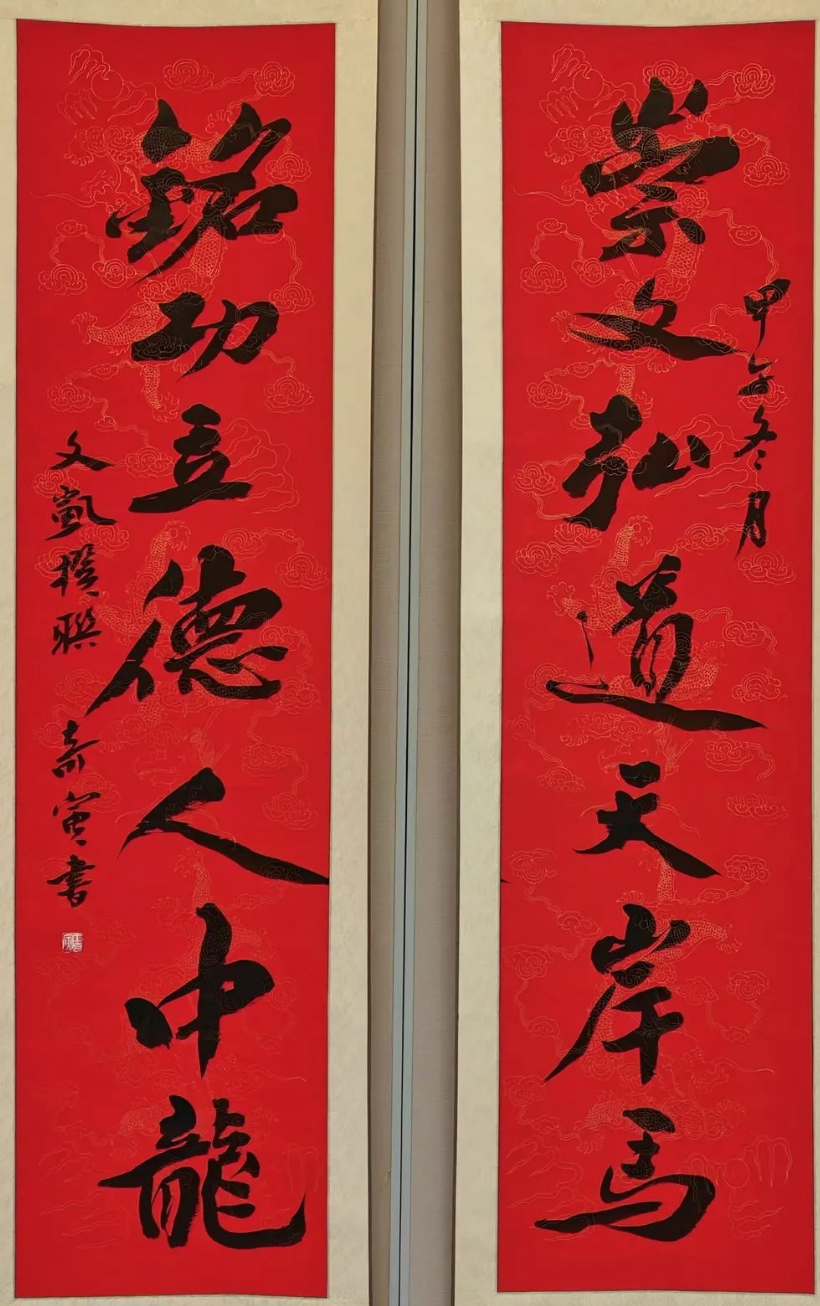 甲午冬月
崇文弘道天岸馬
銘功立德人中龍
文凱撰聯 奇寅書